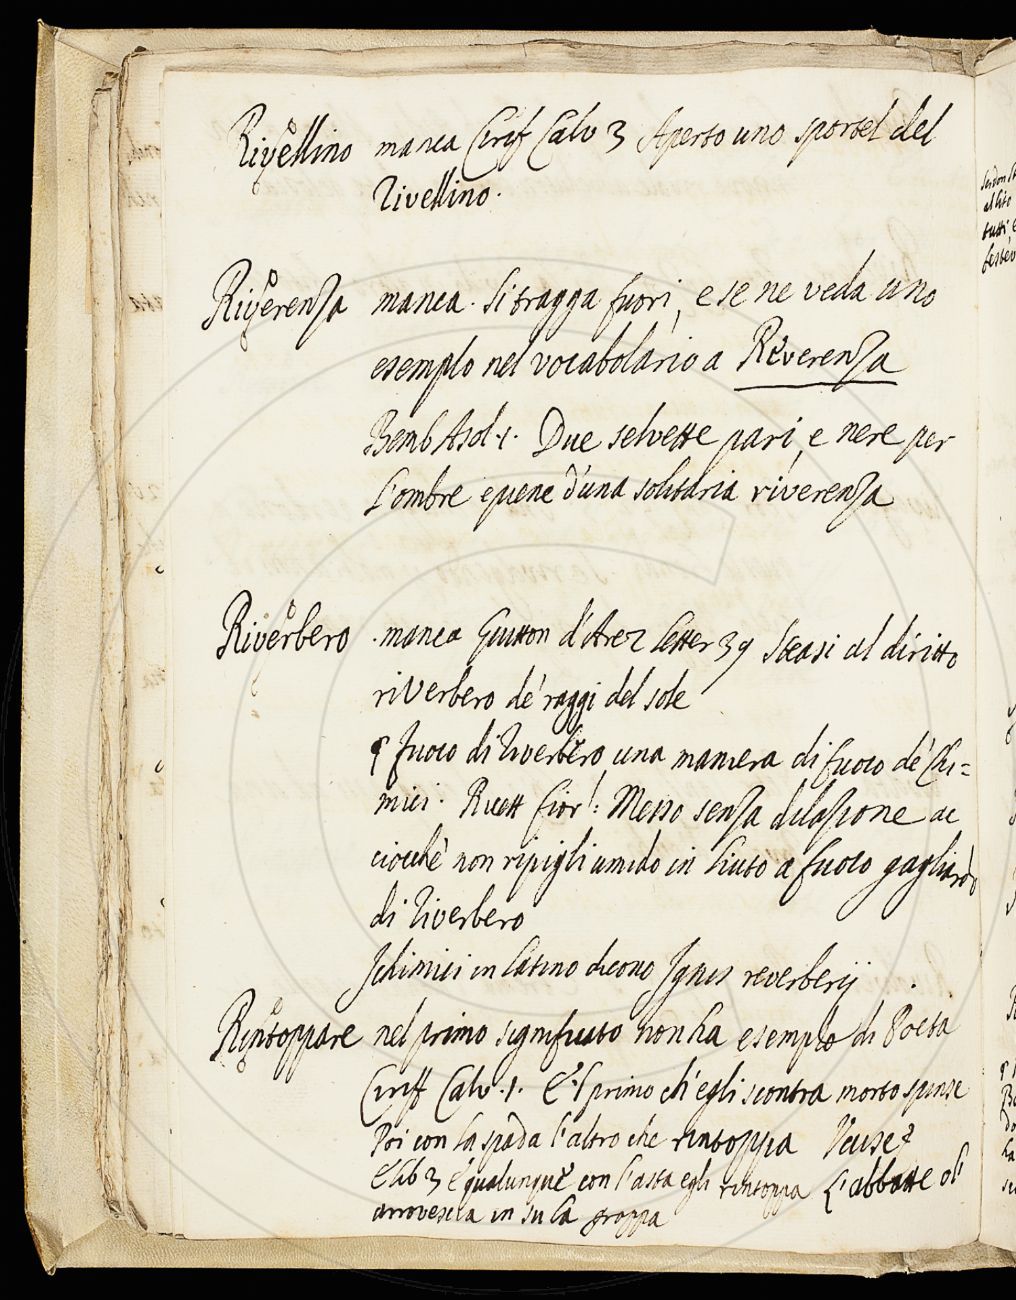 Rivellino manca Cirif Calv 3 Aperto uno sportel del
rivellino.
Riverenza manca. Si tragga fuori, e se ne veda uno
esemplo nel vocabolario a Reverenza
Bemb Asol. 1. Due selvette pari, e nere per
l'ombre e piene d'una solitaria riverenza
Riverbero manca Guitton d'Arez letter 39 Steasi al diritto
riverbero de' raggi del sole
¶ fuoco di riverbero una maniera di fuoco de' Chi=
mici. Ricett fior: Messo senza dilazione ac
ciocchè non ripigli umido in liuto a fuoco gagliardo
di riverbero
I chimici in latino dicono Ignis reverberij
Rintoppare nel primo significato non ha esemplo di Poeta
Ciriff Calv. 1. E 'l primo ch'egli scontra morto spinse
Poi con la spada l'altro che rintoppa
E lib 3 E qualunque con l'asta egli rintoppa L'abbatte o
arrovescia in su la groppa